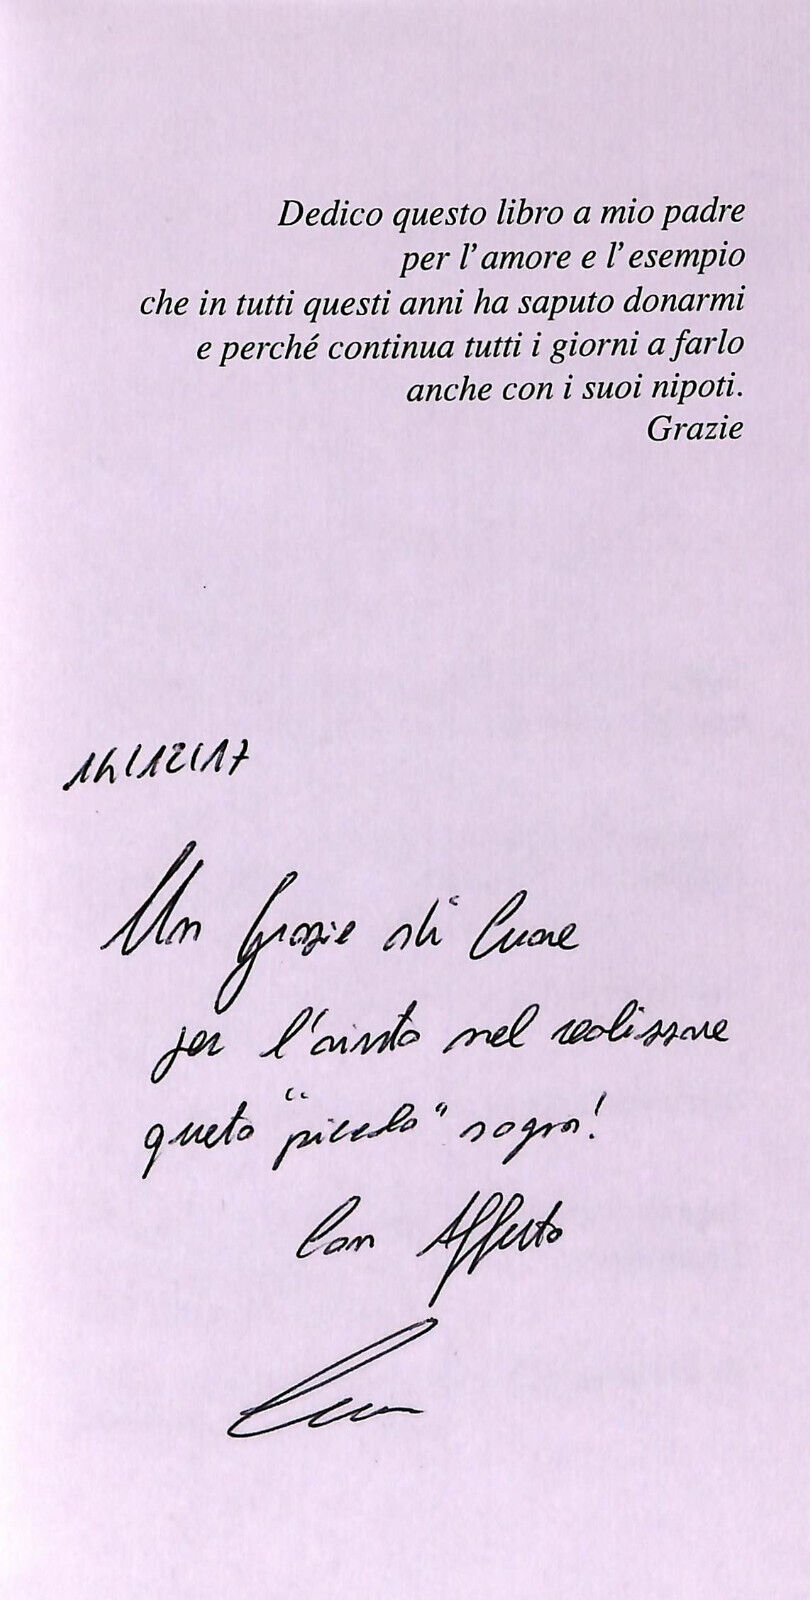 Dedico questo libro a mio padre
per l'amore e l'esempio
che in tutti questi anni ha saputo donarmi
e perché continua tutti i giorni a farlo
anche con i suoi nipoti.
Grazie
14/12/17
Un Grazie di Cuore
per l'aiuto nel realizzare
questo "piccolo" sogno!
Con Affetto